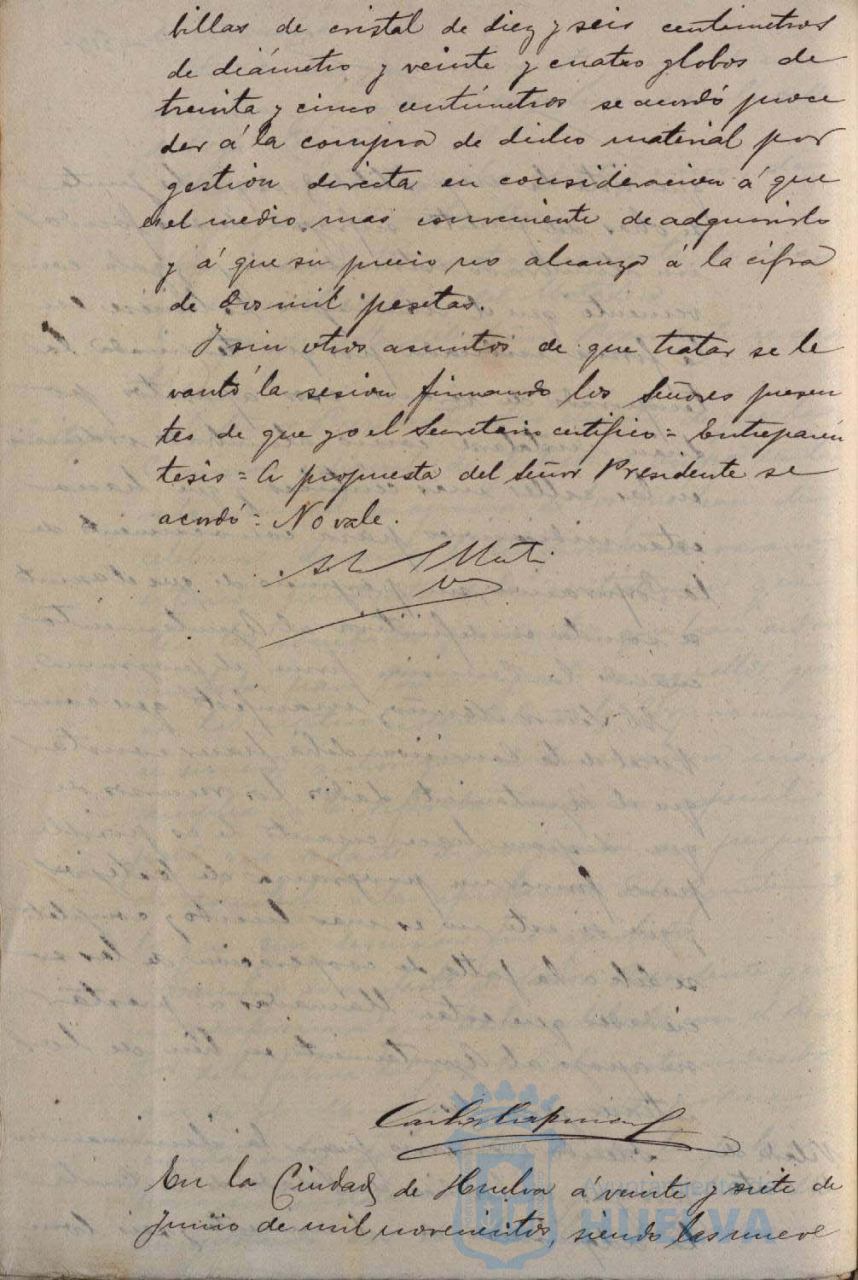 billas de cristal de diez y seis centimetros
de diámetro y veinte y cuatro globos de
treinta y cinco centímetros se acordó proce
der á la compra de dicho material por
gestion directa en consideracion á que
es el medio mas conveniente de adquirirlo
y á que su precio no alcanza á la cifra
de dos mil pesetas.
Y sin otros asuntos de que tratar se le
vantó la sesion firmando los Señores presen
tes de que yo el Secretario certifico = Entreparén
tesis = A propuesta del Señor Presidente se
acordó = No vale.
En la Ciudad de Huelva á veinte y siete de
Junio de mil novecientos, siendo las nueve
Ayuntamiento de
HUELVA